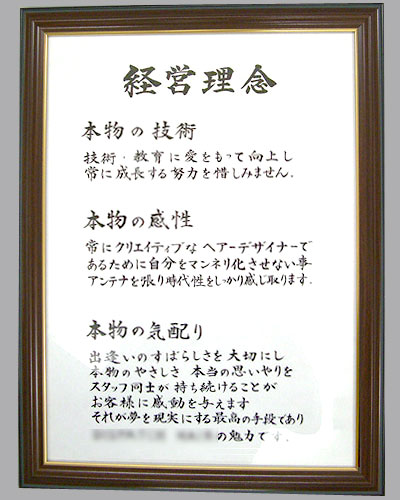 経営理念
本物の技術
技術・教育に愛をもって向上し
常に成長する努力を惜しみません。
本物の感性
常にクリエイティブな ヘアーデザイナーで
あるために自分をマンネリ化させない事
アンテナを張り時代性をしっかり感じ取ります。
本物の気配り
出逢いのすばらしさを大切にし
本物のやさしさ 本当の思いやりを
スタッフ同士が持ち続けることが
お客様に感動を与えます
それが夢を現実にする最高の手段であり
の魅力です。